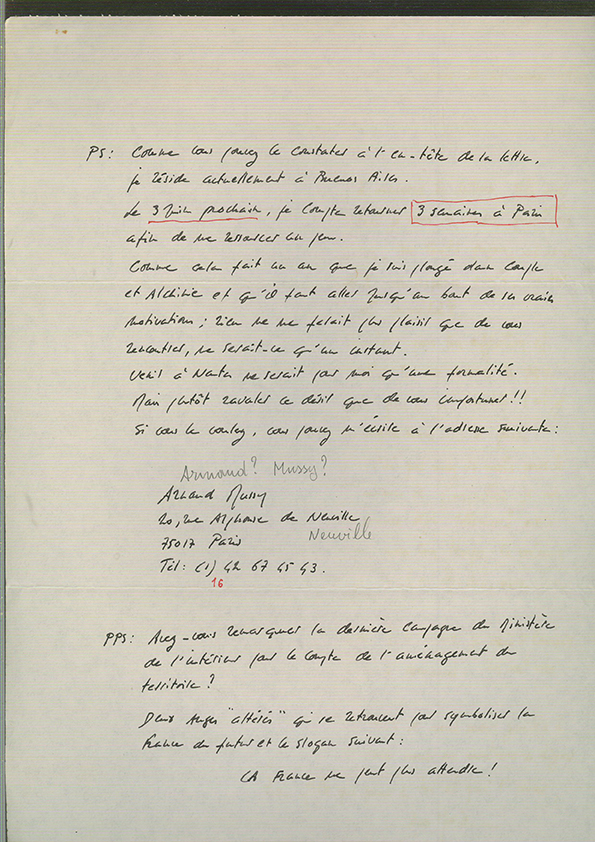 PS: Comme vous pouvez le constater à l'en-tête de la lettre,
je réside actuellement à Buenos Aires.
Le 3 Juin prochain, je compte retourner 3 semaines à Paris
afin de me ressourcer un peu.
Comme cela fait un an que je suis plongé dans
et Alchimie et qu'il faut aller jusqu'au bout de sa vraies
motivations ; rien ne me ferait plus plaisir que de vous
rencontrer, ne serait-ce qu'un instant.
Venir à Nantes ne serait pour moi qu'une formalité.
Mais plutôt ravaler ce désir que de vous importuner!!
Si vous le voulez, vous pouvez m'écrire à l'adresse suivante:
Armand? Mussy?
Arnaud Mussy
20, rue Alphonse de Neuville
75017 Paris Neuville
Tél: (1) 42 67 45 43.
16
PPS: Avez-vous remarquer la dernière campagne du Ministère
de l'intérieur pour le compte de l'aménagement du
territoire?
Deux Anges "altérés" qui se retrouvent pour symboliser la
France du futur et le slogan suivant:
LA France ne peut plus attendre!